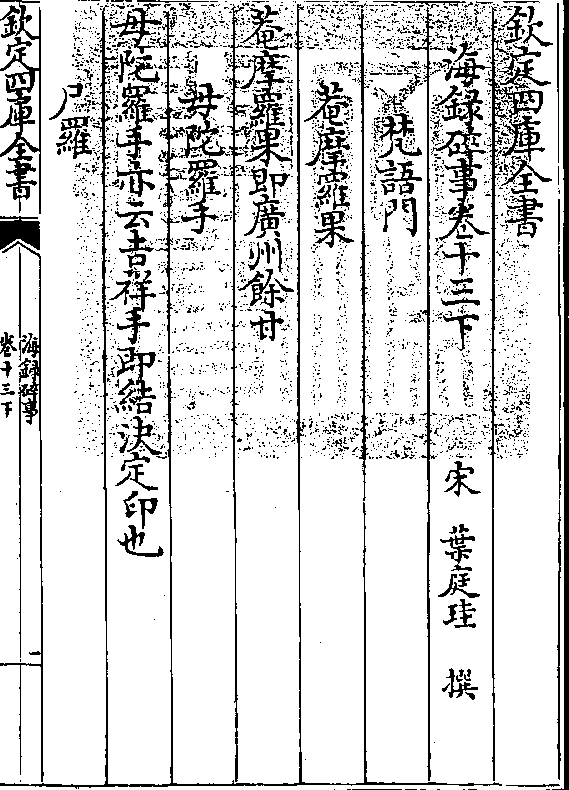 欽定四庫全書
海錄碎事卷十三下 宋 葉庭珪 撰
梵語門
菴摩羅果
菴摩羅果即廣州餘甘
母陀羅手
母陀羅手亦云吉祥手即結決定印也
尸羅
欽定四庫全書
海錄碎事
卷十三下
一